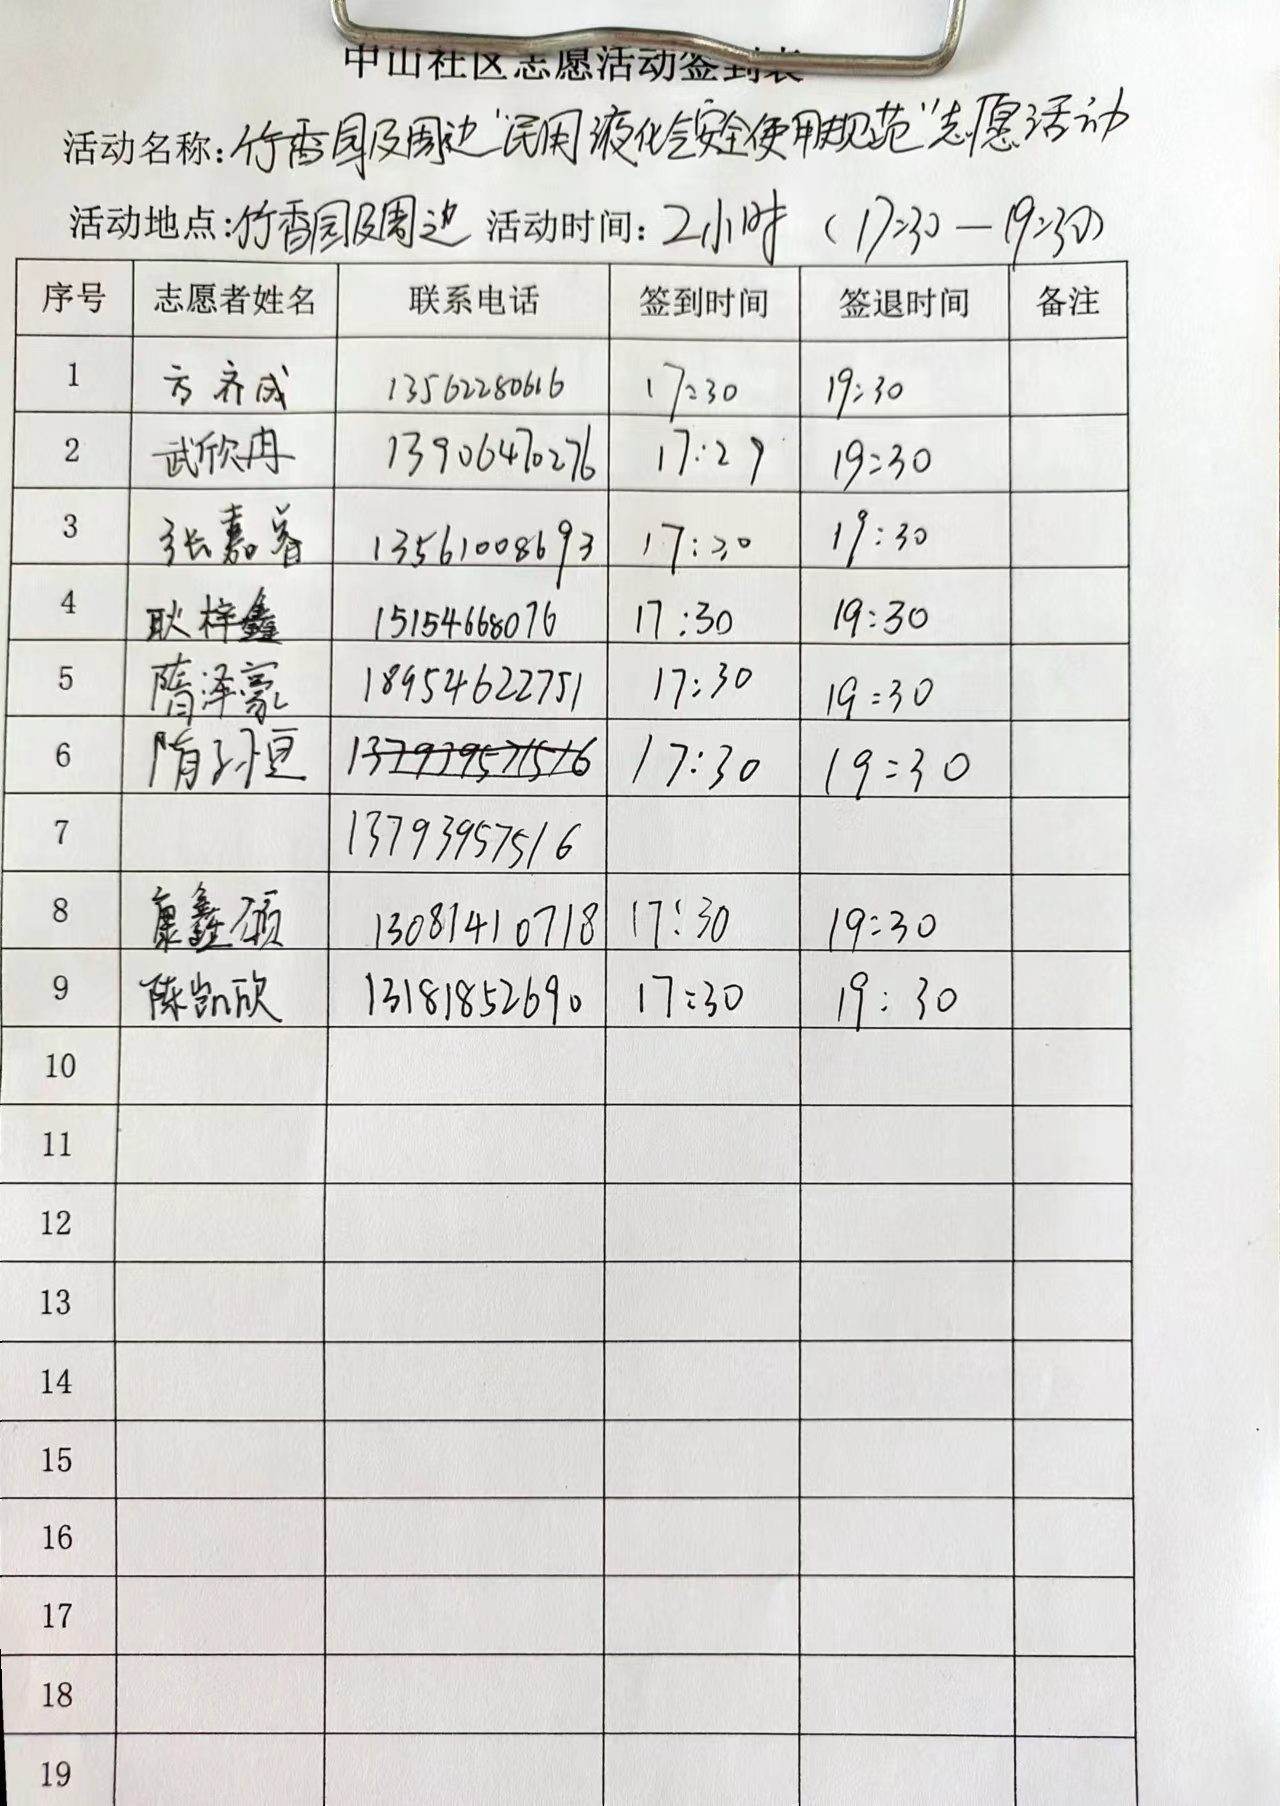 中山社区志愿活动签到表
活动名称:竹香园及周边"民用液化气安全使用规范"志愿活动
活动地点:竹香园及周边 活动时间:2小时 (17:30—19:30)
序号 志愿者姓名 联系电话 签到时间 签退时间 备注
1 方齐成 13562280616 17:30 19:30
2 武欣冉 13906470276 17:29 19:30
3 张嘉睿 13561008693 17:30 19:30
4 耿梓鑫 15154668076 17:30 19:30
5 隋泽豪 18954622751 17:30 19:30
6 隋子恒 17:30 19:30
7 13793957516
8 康鑫硕 13081410718 17:30 19:30
9 陈凯欣 13181852690 17:30 19:30
10
11
12
13
14
15
16
17
18
19